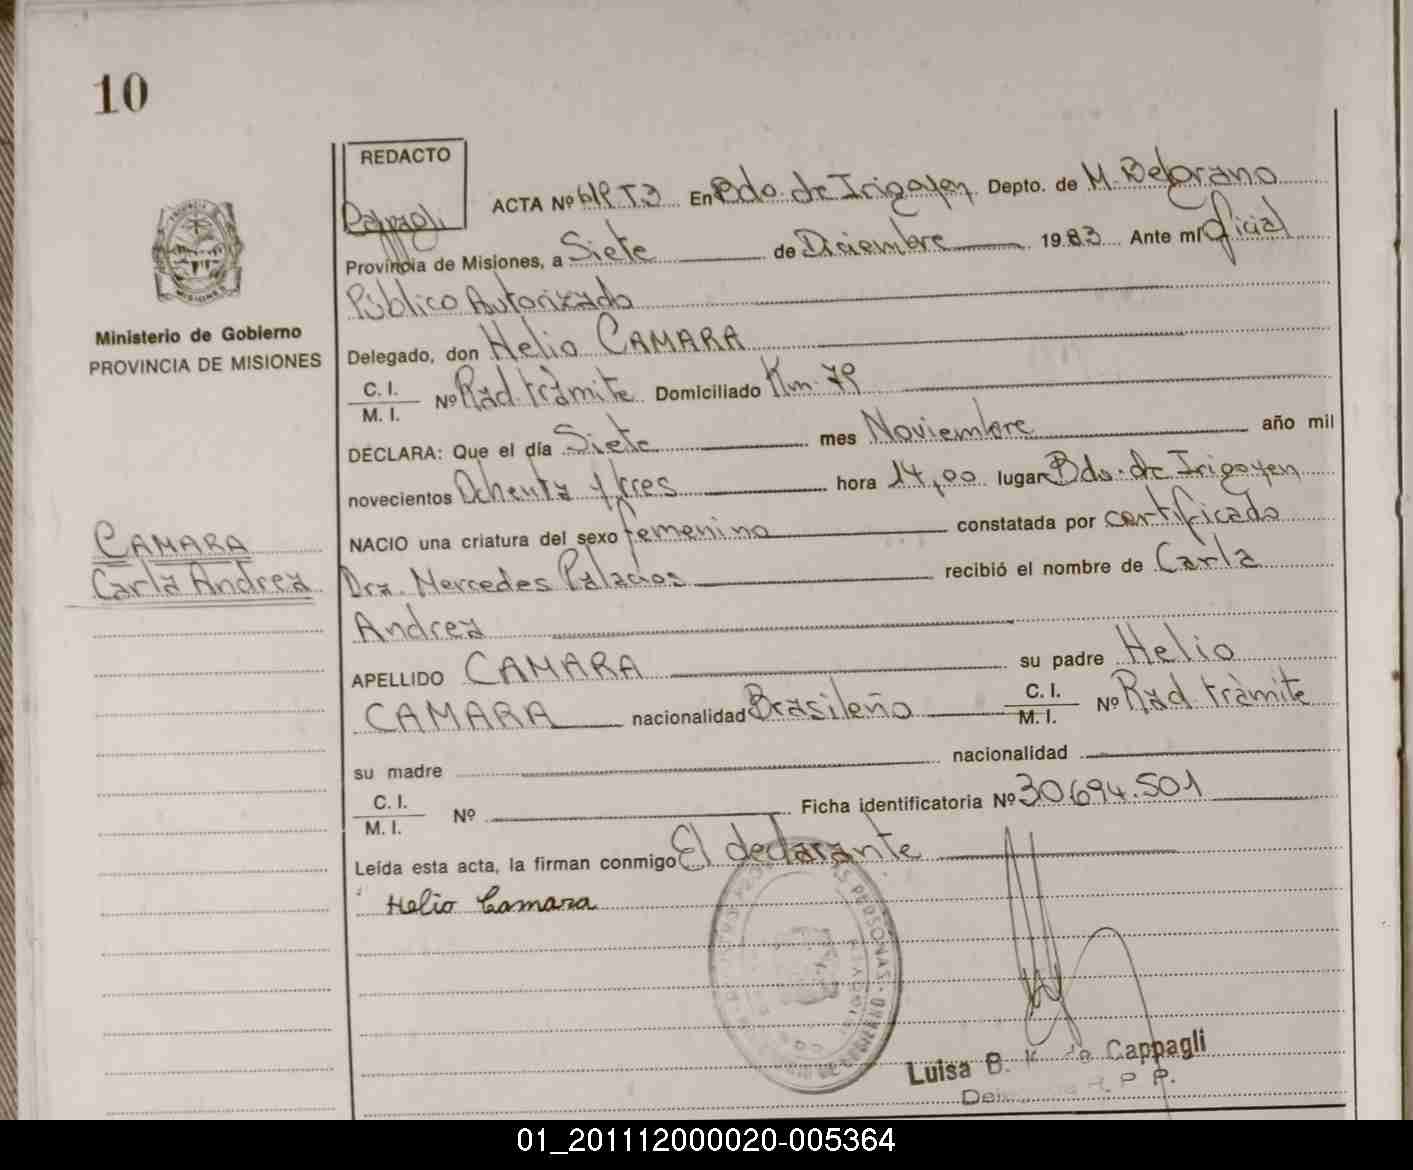 10
REDACTO
Cappagli
ACTA Nº En Bdo. de Irigoyen Depto. de M. Belgrano
Provincia de Misiones, a Siete de Diciembre 1983 Ante mí Oficial
Público Autorizado
Ministerio de Gobierno
PROVINCIA DE MISIONES
Delegado, don Helio CAMARA
C. I.
M. I. Nº Rad. tràmite Domiciliado Km. 79
DECLARA: Que el día Siete mes Noviembre año mil
novecientos Ochenta y tres hora 14,00 lugar Bdo. de Irigoyen
NACIO una criatura del sexo femenino constatada por certificado
CAMARA
Carla Andrea
Dra. Mercedes Palacios recibió el nombre de Carla
Andrea
APELLIDO CAMARA su padre Helio
CAMARA nacionalidad Brasileño C. I. M. I. Nº Rad. tràmite
su madre nacionalidad
C. I.
M. I. Nº Ficha identificatoria Nº 30.694.501
Leída esta acta, la firman conmigo El declarante
Helio Camara
PERSONAS
Luisa B. K. de Cappagli
R. P. P.
01_201112000020-005364